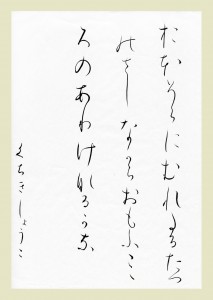 おほそらにむれたるたつ
のさしなからおもふここ
ろのありけなるかな
くちきしょうこ